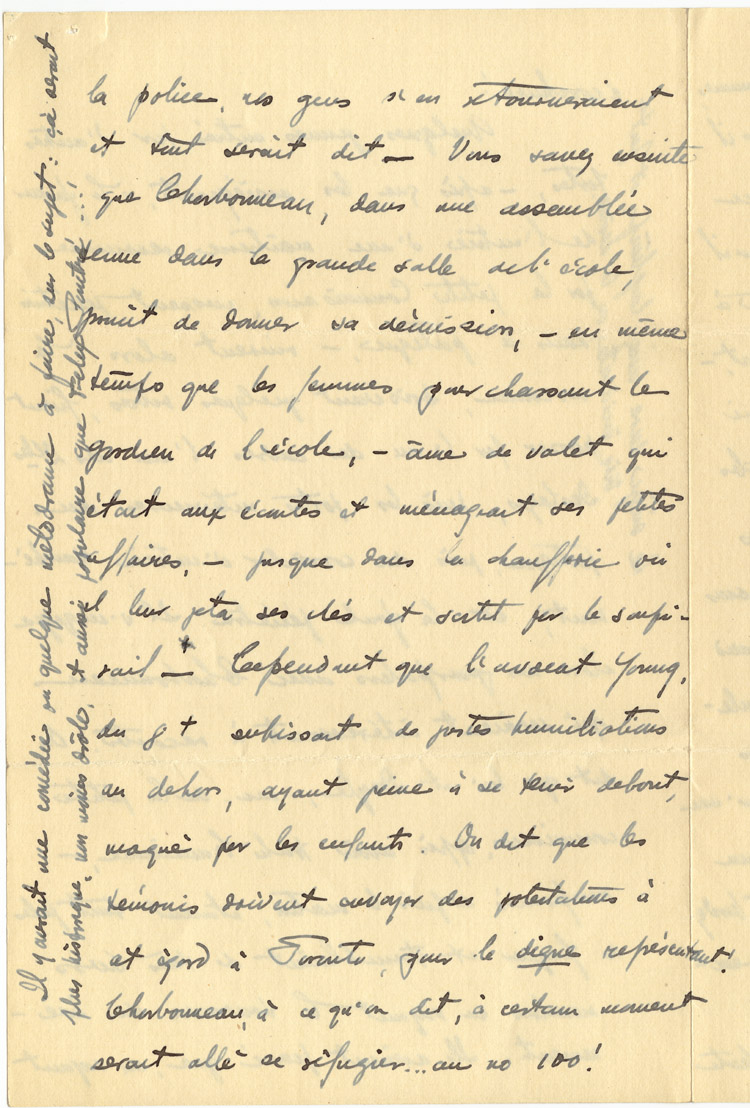 la police, nos gens s'en retourneraient
et tout serait dit — Vous savez ensuite
que Charbonneau, dans une assemblée
tenue dans la grande salle de l'école,
promit de donner sa démission, – en même
temps que les femmes pourchassant le
gardien de l'école, – âme de valet qui
était aux écoutes et ménageait ses petites
affaires, – jusque dans la chaufferie où
il leur jeta ses clés et sortit par le soupi-
rail — Cependant que l'avocat Young,
du gt subissait de justes humiliations
au dehors, ayant peine à se tenir debout,
moqué par les enfants. On dit que les
témoins doivent envoyer des protestations à
cet égard à Toronto, pour le digne représentant!
Charbonneau, à ce qu'on dit, à certain moment
serait allé se réfugier... au no 100!
Il y aurait une comédie ou quelque mélodrame à faire, sur le sujet: ça serait
plus historique, non moins drôle, et aussi populaire que Félix Poutré...!